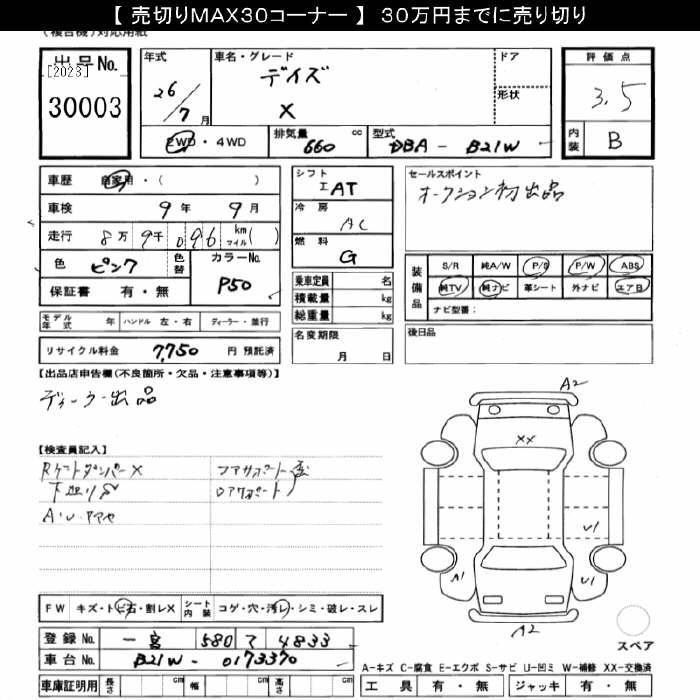 【 売切りMAX30コーナー 】 30万円までに売り切り
(複合機)対応用紙
出品No.
[2023]
30003
年式 26/7月
車名・グレード デイズ X
ドア
形状
評価点 3.5
内装 B
2WD・4WD
排気量 660 cc
型式 DBA - B21W
車歴 自家用・( )
車検 9年 9月
走行 8万 9千 096 km マイル( )
色 ピンク 色替
カラーNo. P50
保証書 有・無
シフト エAT
冷房 AC
燃料 G
乗車定員 名
積載量 kg
総重量 kg
セールスポイント
オークション初出品
装備品 S/R 純A/W P/S P/W ABS
純TV 純ナビ 革シート 外ナビ エアB
ナビ型番:
モデル年式 年 ハンドル 左・右 ディーラー・並行
リサイクル料金 7,750 円 預託済
名変期限 月 日
後日品
【出品店申告欄(不良箇所・欠品・注意事項等)】
ディーラー出品
【検査員記入】
A2
XX
U1
A1
U1
A2
FW キズ・トビ石・割レX シート内装 コゲ・穴・汚レ・シミ・破レ・スレ
登録No. 一宮 580 て 4833
車台No. B21W - 0173370
車庫証明用 長さ cm 幅 cm 高さ cm
スペア
A-キズ C-腐食 E-エクボ S-サビ U-凹ミ W-補修 XX-交換済
工具 有・無 ジャッキ 有・無